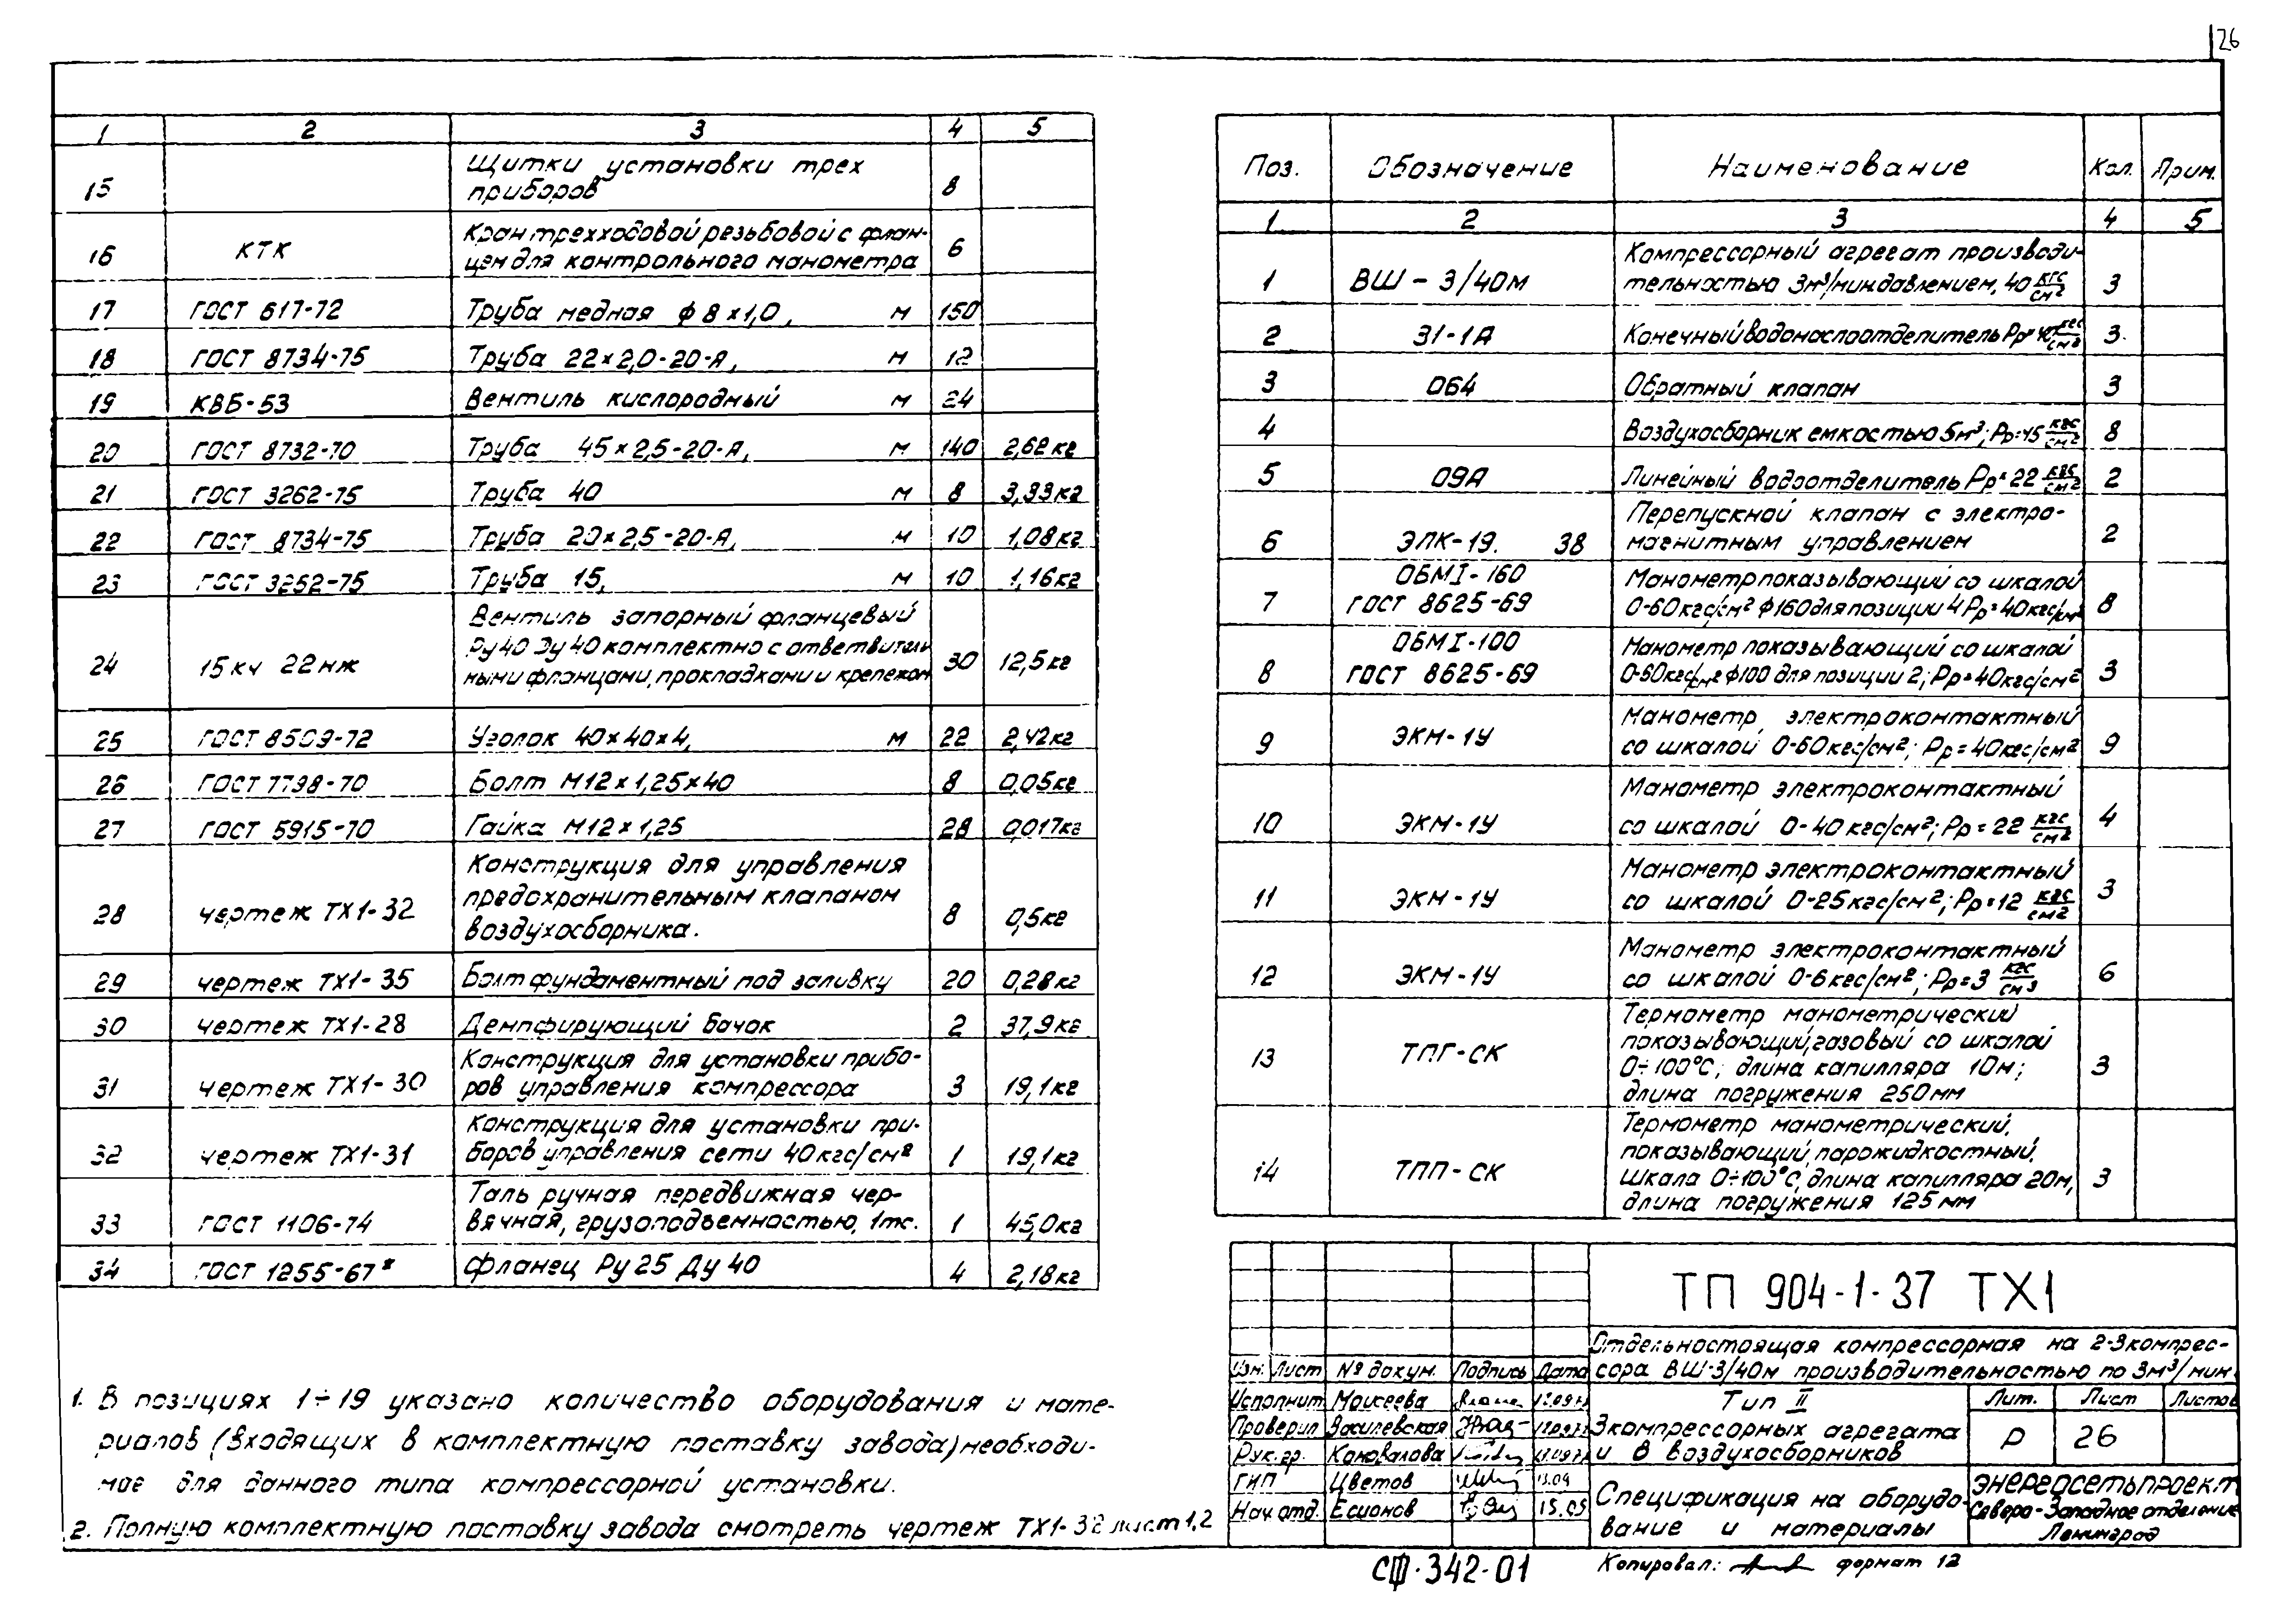 26
1 2 3 4 5
15 Щитки установки трех
приборов 8
16 КТК Кран трехходовой резьбовой с флан-
цем для контрольного манометра 6
17 ГОСТ 617-72 Труба медная ф 8×1,0, м 150
18 ГОСТ 8734-75 Труба 22×2,0-20-А, м 12
19 КВБ-53 Вентиль кислородный м 24
20 ГОСТ 8732-70 Труба 45×2,5-20-А, м 140 2,62кг
21 ГОСТ 3262-75 Труба 40 м 8 3,33кг
22 ГОСТ 8734-75 Труба 20×2,5-20-А, м 10 1,08кг
23 ГОСТ 3262-75 Труба 15, м 10 1,16кг
24 15кч 22нж Вентиль запорный фланцевый
Ру40 Ду40 комплектно с ответвитель
ными фланцами, прокладками и крепежом 30 12,5кг
25 ГОСТ 8509-72 Уголок 40×40×4, м 22 2,42кг
26 ГОСТ 7798-70 Болт М12×1,25×40 8 0,05кг
27 ГОСТ 5915-70 Гайка М12×1,25 28 0,017кг
28 чертеж ТХ1-32 Конструкция для управления
предохранительным клапаном
воздухосборника. 8 0,5кг
29 чертеж ТХ1-35 Болт фундаментный под заливку 20 0,28кг
30 чертеж ТХ1-28 Демпфирующий бачок 2 37,9кг
31 чертеж ТХ1-30 Конструкция для установки прибо-
ров управления компрессора 3 19,1кг
32 чертеж ТХ1-31 Конструкция для установки при-
боров управления сети 40кгс/см² 1 19,1кг
33 ГОСТ 1106-74 Таль ручная передвижная чер-
вячная, грузоподъемностью, 1тс. 1 45,0кг
34 ГОСТ 1255-67* фланец Ру25 Ду40 4 2,18кг
1. В позициях 1÷19 указано количество оборудования и мате-
риалов (входящих в комплектную поставку завода) необходи-
мое для данного типа компрессорной установки.
2. Полную комплектную поставку завода смотреть чертеж ТХ1-32 лист 1,2
Поз. Обозначение Наименование Кол. Прим.
1 2 3 4 5
1 ВШ-3/40м Компрессорный агрегат производи-
тельностью 3м³/мин давлением, 40 кгс/см² 3
2 31-1А Конечный водомаслоотделитель Рр=40 кгс/см² 3
3 064 Обратный клапан 3
4 Воздухосборник емкостью 5м³; Рр=45 кгс/см² 8
5 09А Линейный водоотделитель Рр=22 кгс/см² 2
6 ЭПК-19. 38 Перепускной клапан с электро-
магнитным управлением 2
7 ОБМ1-160
ГОСТ 8625-69 Манометр показывающий со шкалой
0-60кгс/см² ф160 для позиции 4 Рр=40кгс/см² 8
8 ОБМ1-100
ГОСТ 8625-69 Манометр показывающий со шкалой
0-60кгс/см² ф100 для позиции 2; Рр=40кгс/см² 3
9 ЭКМ-1У Манометр электроконтактный
со шкалой 0-60кгс/см²; Рр=40кгс/см² 9
10 ЭКМ-1У Манометр электроконтактный
со шкалой 0-40кгс/см²; Рр=22 кгс/см² 4
11 ЭКМ-1У Манометр электроконтактный
со шкалой 0-25кгс/см²; Рр=12 кгс/см² 3
12 ЭКМ-1У Манометр электроконтактный
со шкалой 0-6кгс/см²; Рр=3 кгс/см³ 6
13 ТПГ-СК Термометр манометрический
показывающий, газовый со шкалой
0÷100°С; длина капилляра 10м;
длина погружения 250мм 3
14 ТПП-СК Термометр манометрический,
показывающий, парожидкостный,
шкала 0÷100°С, длина капилляра 20м,
длина погружения 125мм 3
ТП 904-1-37 ТХ1
Отдельностоящая компрессорная на 2-3 компрес-
сора ВШ-3/40м производительностью по 3м³/мин
Изм. Лист № докум. Подпись Дата
Исполнит Моисеева
Проверил Василевская
Рук. гр. Коновалова
ГИП Цветов 13.09
Нач. отд. Есионов 15.09
Тип II
3 компрессорных агрегата
и 8 воздухосборников
Лит. Лист Листов
Р 26
Спецификация на оборудо-
вание и материалы
ЭНЕРГОСЕТЬПРОЕКТ
Северо-Западное отделение
Ленинград
СФ-342-01
Копировал: формат 12